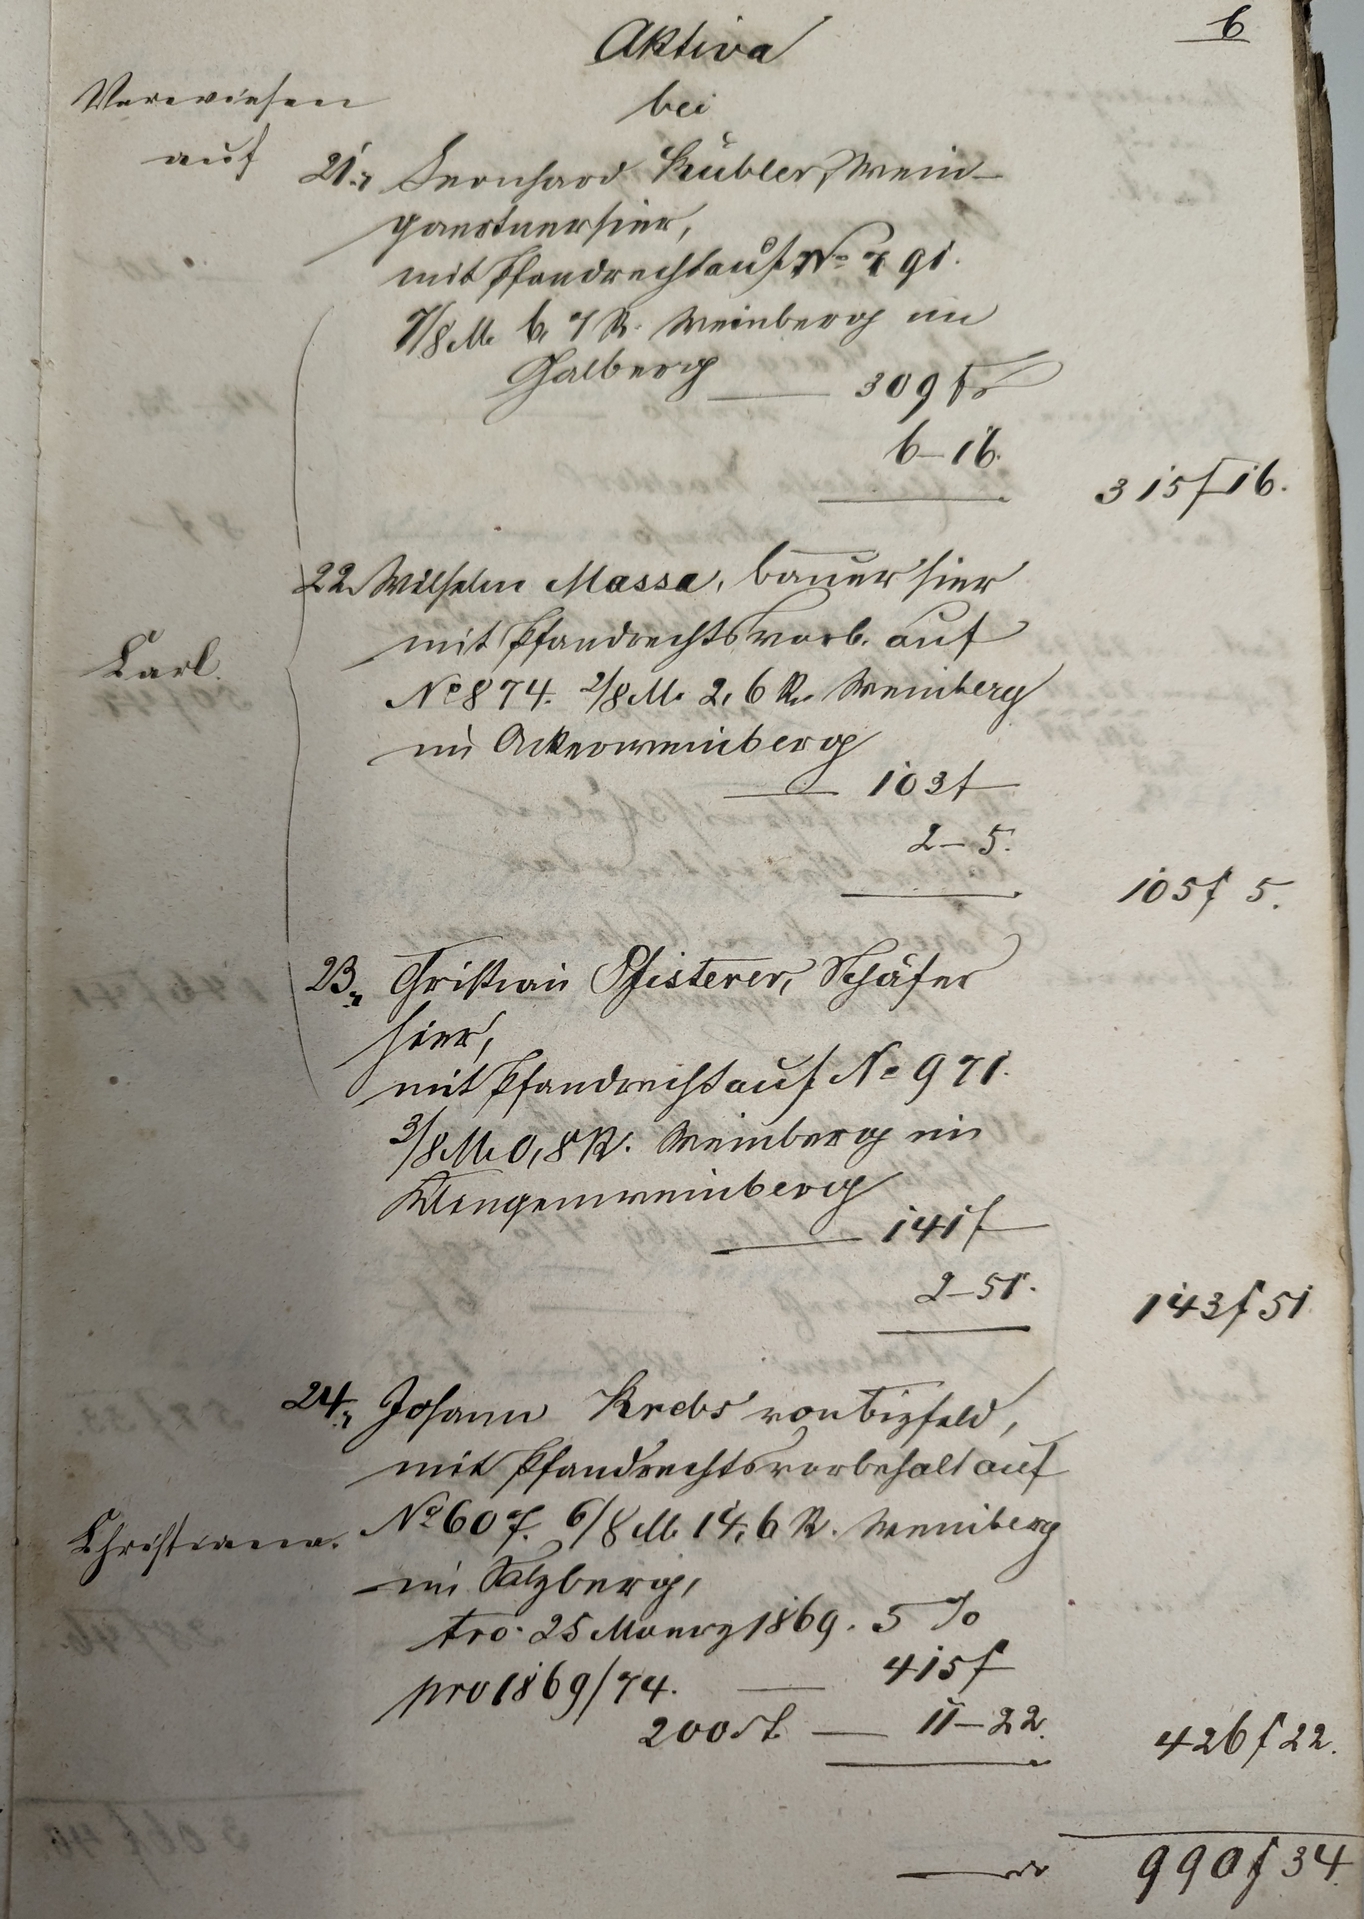 6
Aktiva
Verwiesen
bei
auf
21., Leonhard Kübler, Wein-
gaertner hier,
mit Pfandrecht auf No 791.
7/8 M. 6,7 R. Weinberg im
Galberg — 309 f —
6 – 16.
315 f 16.
22. Wilhelm Massa, bauer hier
mit Pfandrechtsvorb. auf
Carl.
No 874. 2/8 M. 2,6 R. Weinberg
im Ackerweinberg
— 103 f —
2 – 5.
105 f 5.
23., Christian Pfisterer, Schäfer
hier,
mit Pfandrecht auf No 971.
3/8 M. 0,8 R. Weinberg im
Klingenweinberg
— 141 f —
2 – 51.
143 f 51
24., Johann Krebs von Bizfeld,
mit Pfandrechtsvorbehalt auf
Christiana.
No 607. 6/8 M. 14,6 R. Weinberg
im Salzberg,
tro. 25 Maerz 1869. 5 %
pro 1869/74. — 415 f
200 St. — 11 – 22.
426 f 22.
990 f 34.